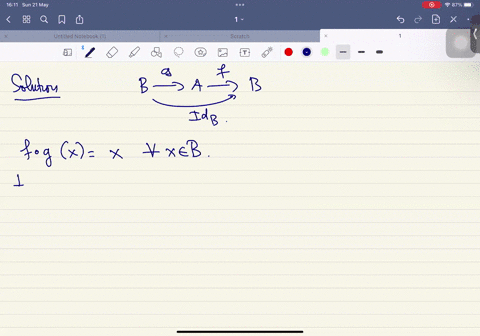 16:11 Sun 21 May
87%
1
Untitled Notebook (1)
Scratch
1
Solution
B →^g A →^f B
Id_B.
f∘g (x) = x ∀ x∈B.